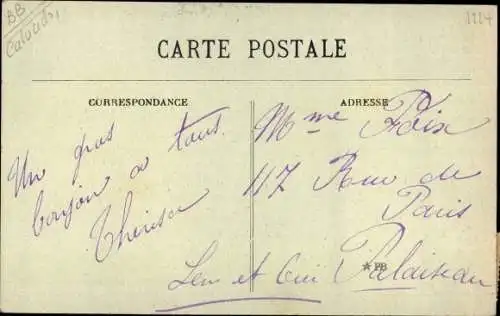 BB
Calvados
1224
CARTE POSTALE
CORRESPONDANCE
ADRESSE
Un gros
bonjour à tous.
Thérèse
Mme Foix
117 Rue de
Paris
Palaiseau
★ PB
et Oise